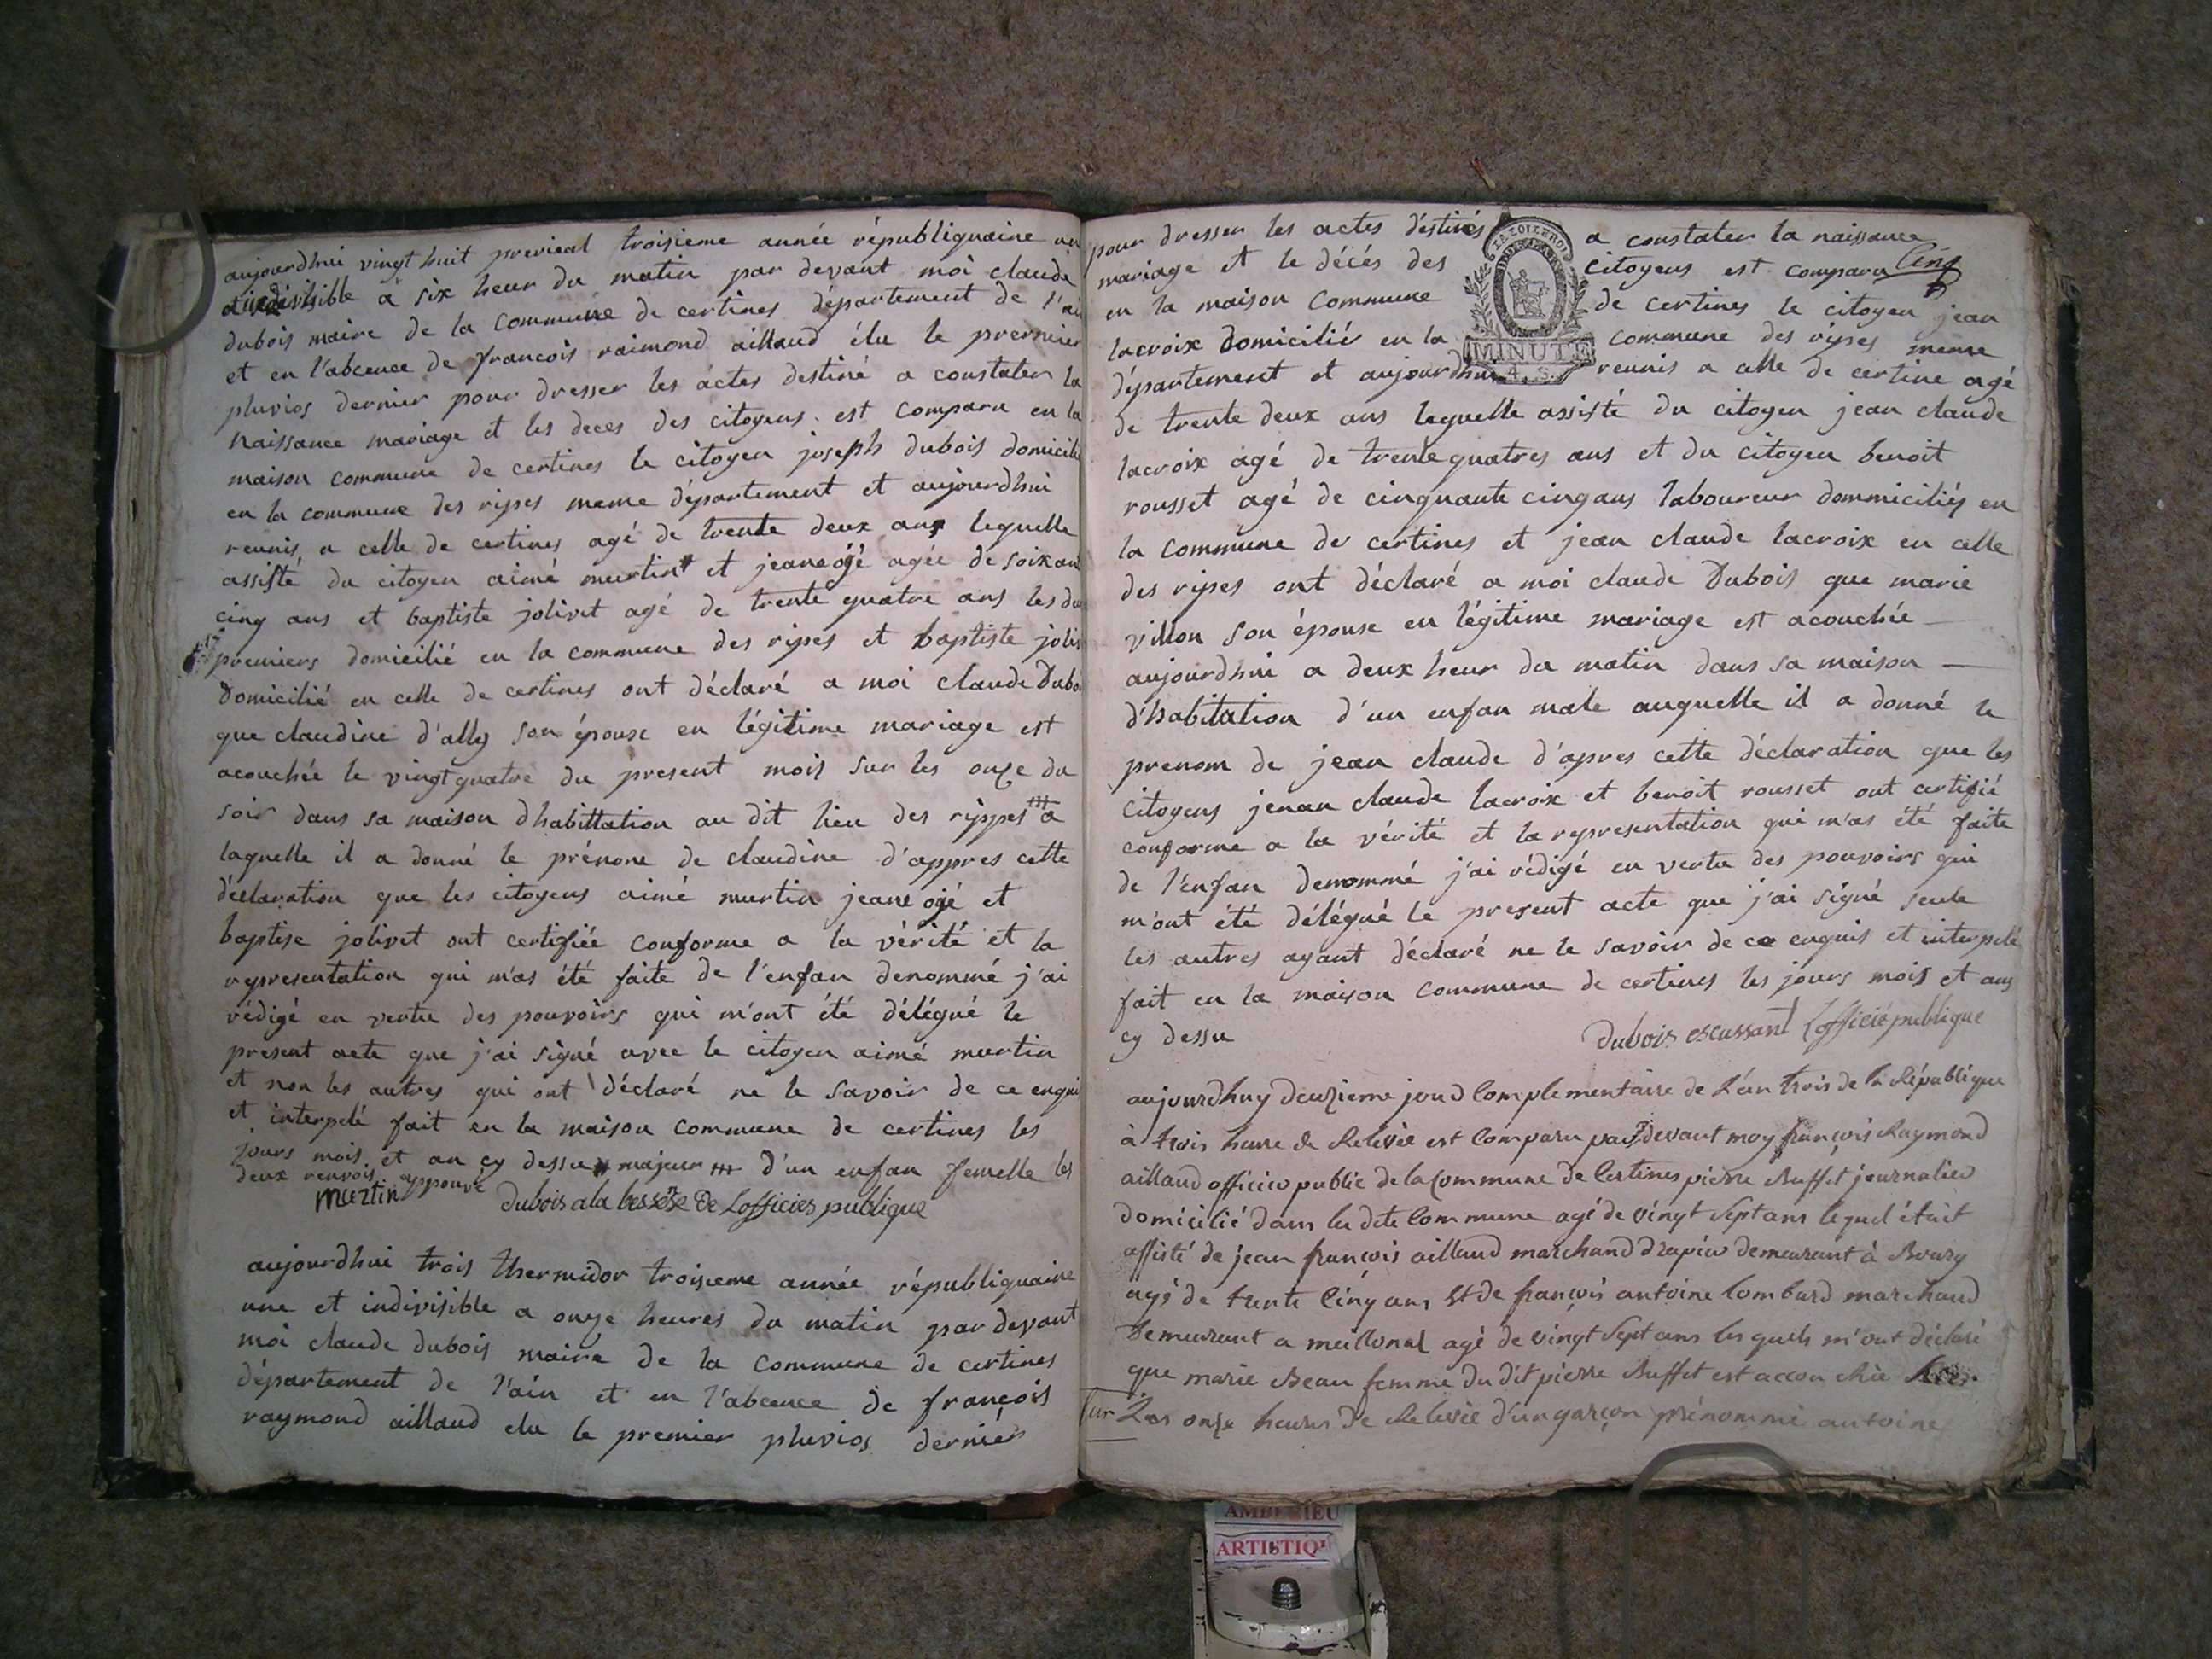 aujourdhui vingt huit prerieal troisieme année républiquaine un
et indivisible a six heur du matin par devant moi claude
dubois maire de la commune de certines département de l'ai
et en l'abcence de francois raimond aillaud élu le prermier
pluvios dernier pour dresser les actes destiné a constater la
naissance mariage et les deces des citoyens est comparu en la
maison commune de certines le citoyen joseph dubois domicili
en la commune des ripes meme département et aujourdhui
reunis a celle de certines agé de trente deux ans lequelle
assisté du citoyen aimé murtin # et jeane ojé agée de soixan
cinq ans et baptiste jolivet agé de trente quatre ans les du
premiers domicilié en la commune des ripes et baptiste joliv
domicilié en celle de certines ont déclaré a moi claude Dubo
que claudine d'ally son épouse en légitime mariage est
acouchée le vingt quatre du present mois sur les onze du
soir dans sa maison dhabittation au dit lieu des rippes a
laquelle il a donné le prénone de claudine d'appres cette
déclaration que les citoyens aimé murtin jeane ojé et
baptise jolivet ont certifiée conforme a la vérité et la
representation qui m'as été faite de l'enfan denommé j'ai
rédigé en vertu des pouvoirs qui m'ont été délégué le
present acte que j'ai signé avec le citoyen aimé murtin
et non les autres qui ont déclaré ne le savoir de ce enqui
et interpelé fait en la maison commune de certines les
jours mois et an cy dessu # majeur ### d'un enfan femelle les
deux renvois appouvé
Murtin Dubois a la besseze de Lofficies publique
aujourdhui trois thermidor troisieme année républiquaine
une et indivisible a onze heures du matin par devant
moi claude dubois maire de la commune de certines
département de l'ain et en l'abcence de francois
raymond aillaud elu le premier pluvios dernier
pour dresser les actes déstinés a constater la naissance
Cinq
mariage et le décés des citoyens est comparu
en la maison commune de certines le citoyen jean
lacroix domiciliés en la commune des ripes meme
département et aujourdhui reunis a celle de certine agé
LA LOI LE ROI
MINUTE
4. S.
de trente deux ans lequelle assisté du citoyen jean claude
lacroix agé de trente quatres ans et du citoyen benoit
rousset agé de cinquante cinq ans laboureur dommiciliés en
la commune de certines et jean claude lacroix en celle
des ripes ont déclaré a moi claude Dubois que marie
villon son épouse en légitime mariage est acouchée
aujourdhui a deux heur du matin dans sa maison
d'habitation d'un enfan male auquelle il a donné le
prenom de jean claude d'apres cette déclaration que les
citoyens jenan claude lacroix et benoit rousset ont certifié
conforme a la vérité et la representation qui m'as été faite
de l'enfan denommé j'ai rédigé en vertu des pouvoirs qui
m'ont été délégué le present acte que j'ai signé seule
les autres ayant déclaré ne le savoir de ce enquis et interpelé
fait en la maison commune de certines les jours mois et ans
cy dessu
Dubois escussant Lofficié publique
aujourdhuy deuzieme jour Complementaire de L'an trois de la République
à trois heure de Relevée est Comparu par devant moy françois Raymond
aillaud officier public de la Commune de Certines pierre Buffet journalier
domicilié dans la dite Commune agé de vingt Sept ans lequel était
assisté de jean françois aillaud marchand drapier demeurant à Bourg
agé de trente Cinq ans Et de françois antoine lombard marchand
demeurant a meillonal agé de vingt Sept ans les quels m'ont déclaré
que marie Beau femme du dit pierre Buffet est accouchée
Sur Les onze heures de Relevée d'un garçon prénommé antoine
AMBERIEU
ARTISTIQU